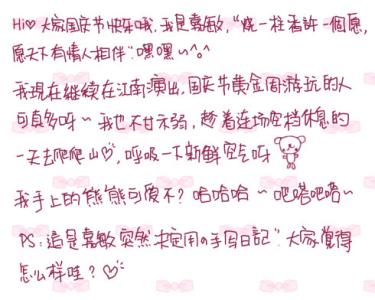 Hi♡ 大家国庆节快乐哦, 我是嘉敏,“烧一柱香許一個愿,
愿天下有情人相伴”嘿嘿~^o^
我現在継续在江南演出,国庆节黄金周游玩的人
可真多呀~ 我也不甘示弱, 趁着连场空档休息的
一天去爬爬山♡, 呼吸一下新鲜空气呀
我手上的熊熊可爱不? 哈哈哈~吧嗒吧嗒~
PS:這是嘉敏突然决定用の手写日記“大家覺得
怎么样哇?♡